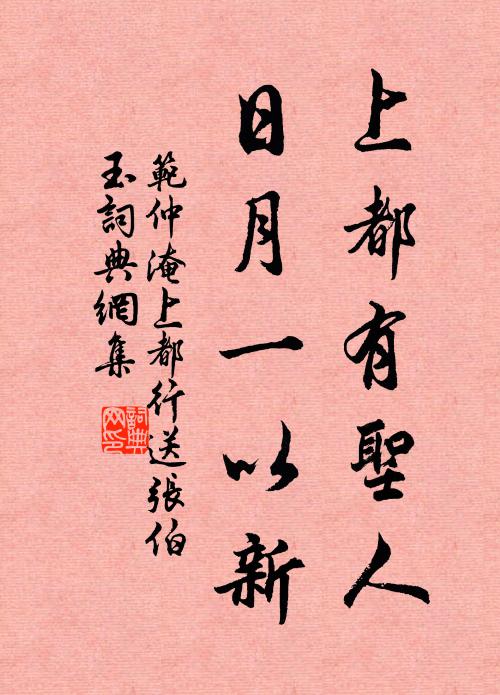 上都有聖人
日月一以新
範仲淹上都行送張伯
玉詞典網集
詞典網印